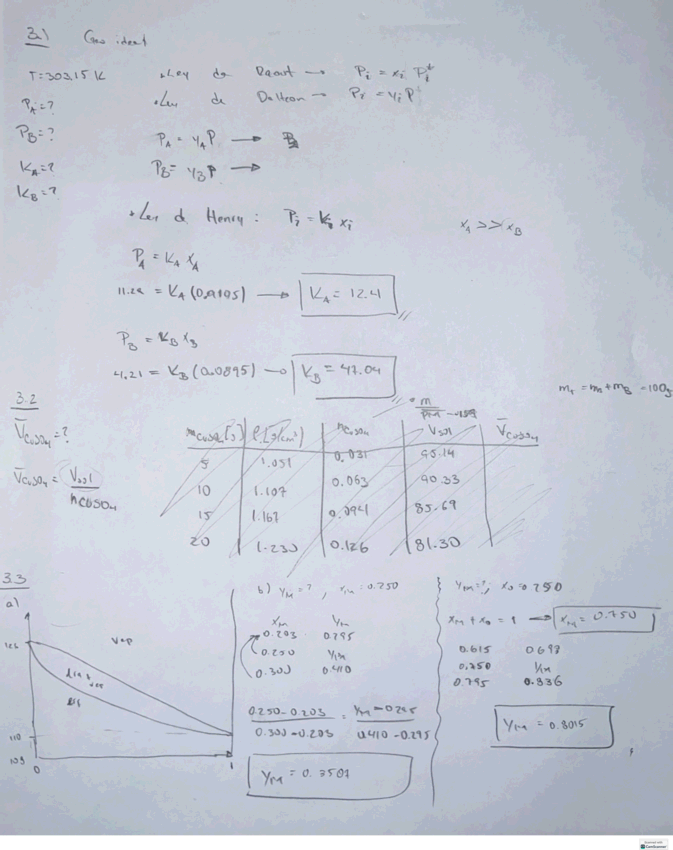 3.1 Gas ideal
T=303.15 K
• Ley de Raoult → Pi = xi Pi*
• Ley de Dalton → Pi = yi P
PA=?
PB=?
KA=?
KB=?
PA = yA P →
PB = yB P →
• Ley d Henry: Pi = Ki xi
xA >> xB
PA = KA xA
→ KA = 12.4
PB = KB xB
4.21 = KB (0.0895) → KB = 47.04
3.2
V̄CuSO4 = ?
V̄CuSO4 = Vsol / nCuSO4
mT = m + mB = 100g
mCuSO4 [g] ρ [g/cm³] nCuSO4 Vsol V̄CuSO4
5 1.051 0.031 95.14
10 1.107 0.063 90.33
15 1.167 0.0941 85.69
20 1.230 0.126 81.30
3.3
a)
Vap
Liq
110
0 1
b) yM = ?, xM = 0.250
xM yM
0.203 0.295
0.250 yM
0.300 0.410
0.250 - 0.203 / 0.300 - 0.203 = yM - 0.295 / 0.410 - 0.295
yM = 0.3507
yM = ?; xO = 0.250
xM + xO = 1 → xM = 0.750
0.615 0.698
0.750 yM
0.795 0.836
yM = 0.8015
Scanned with
CamScanner